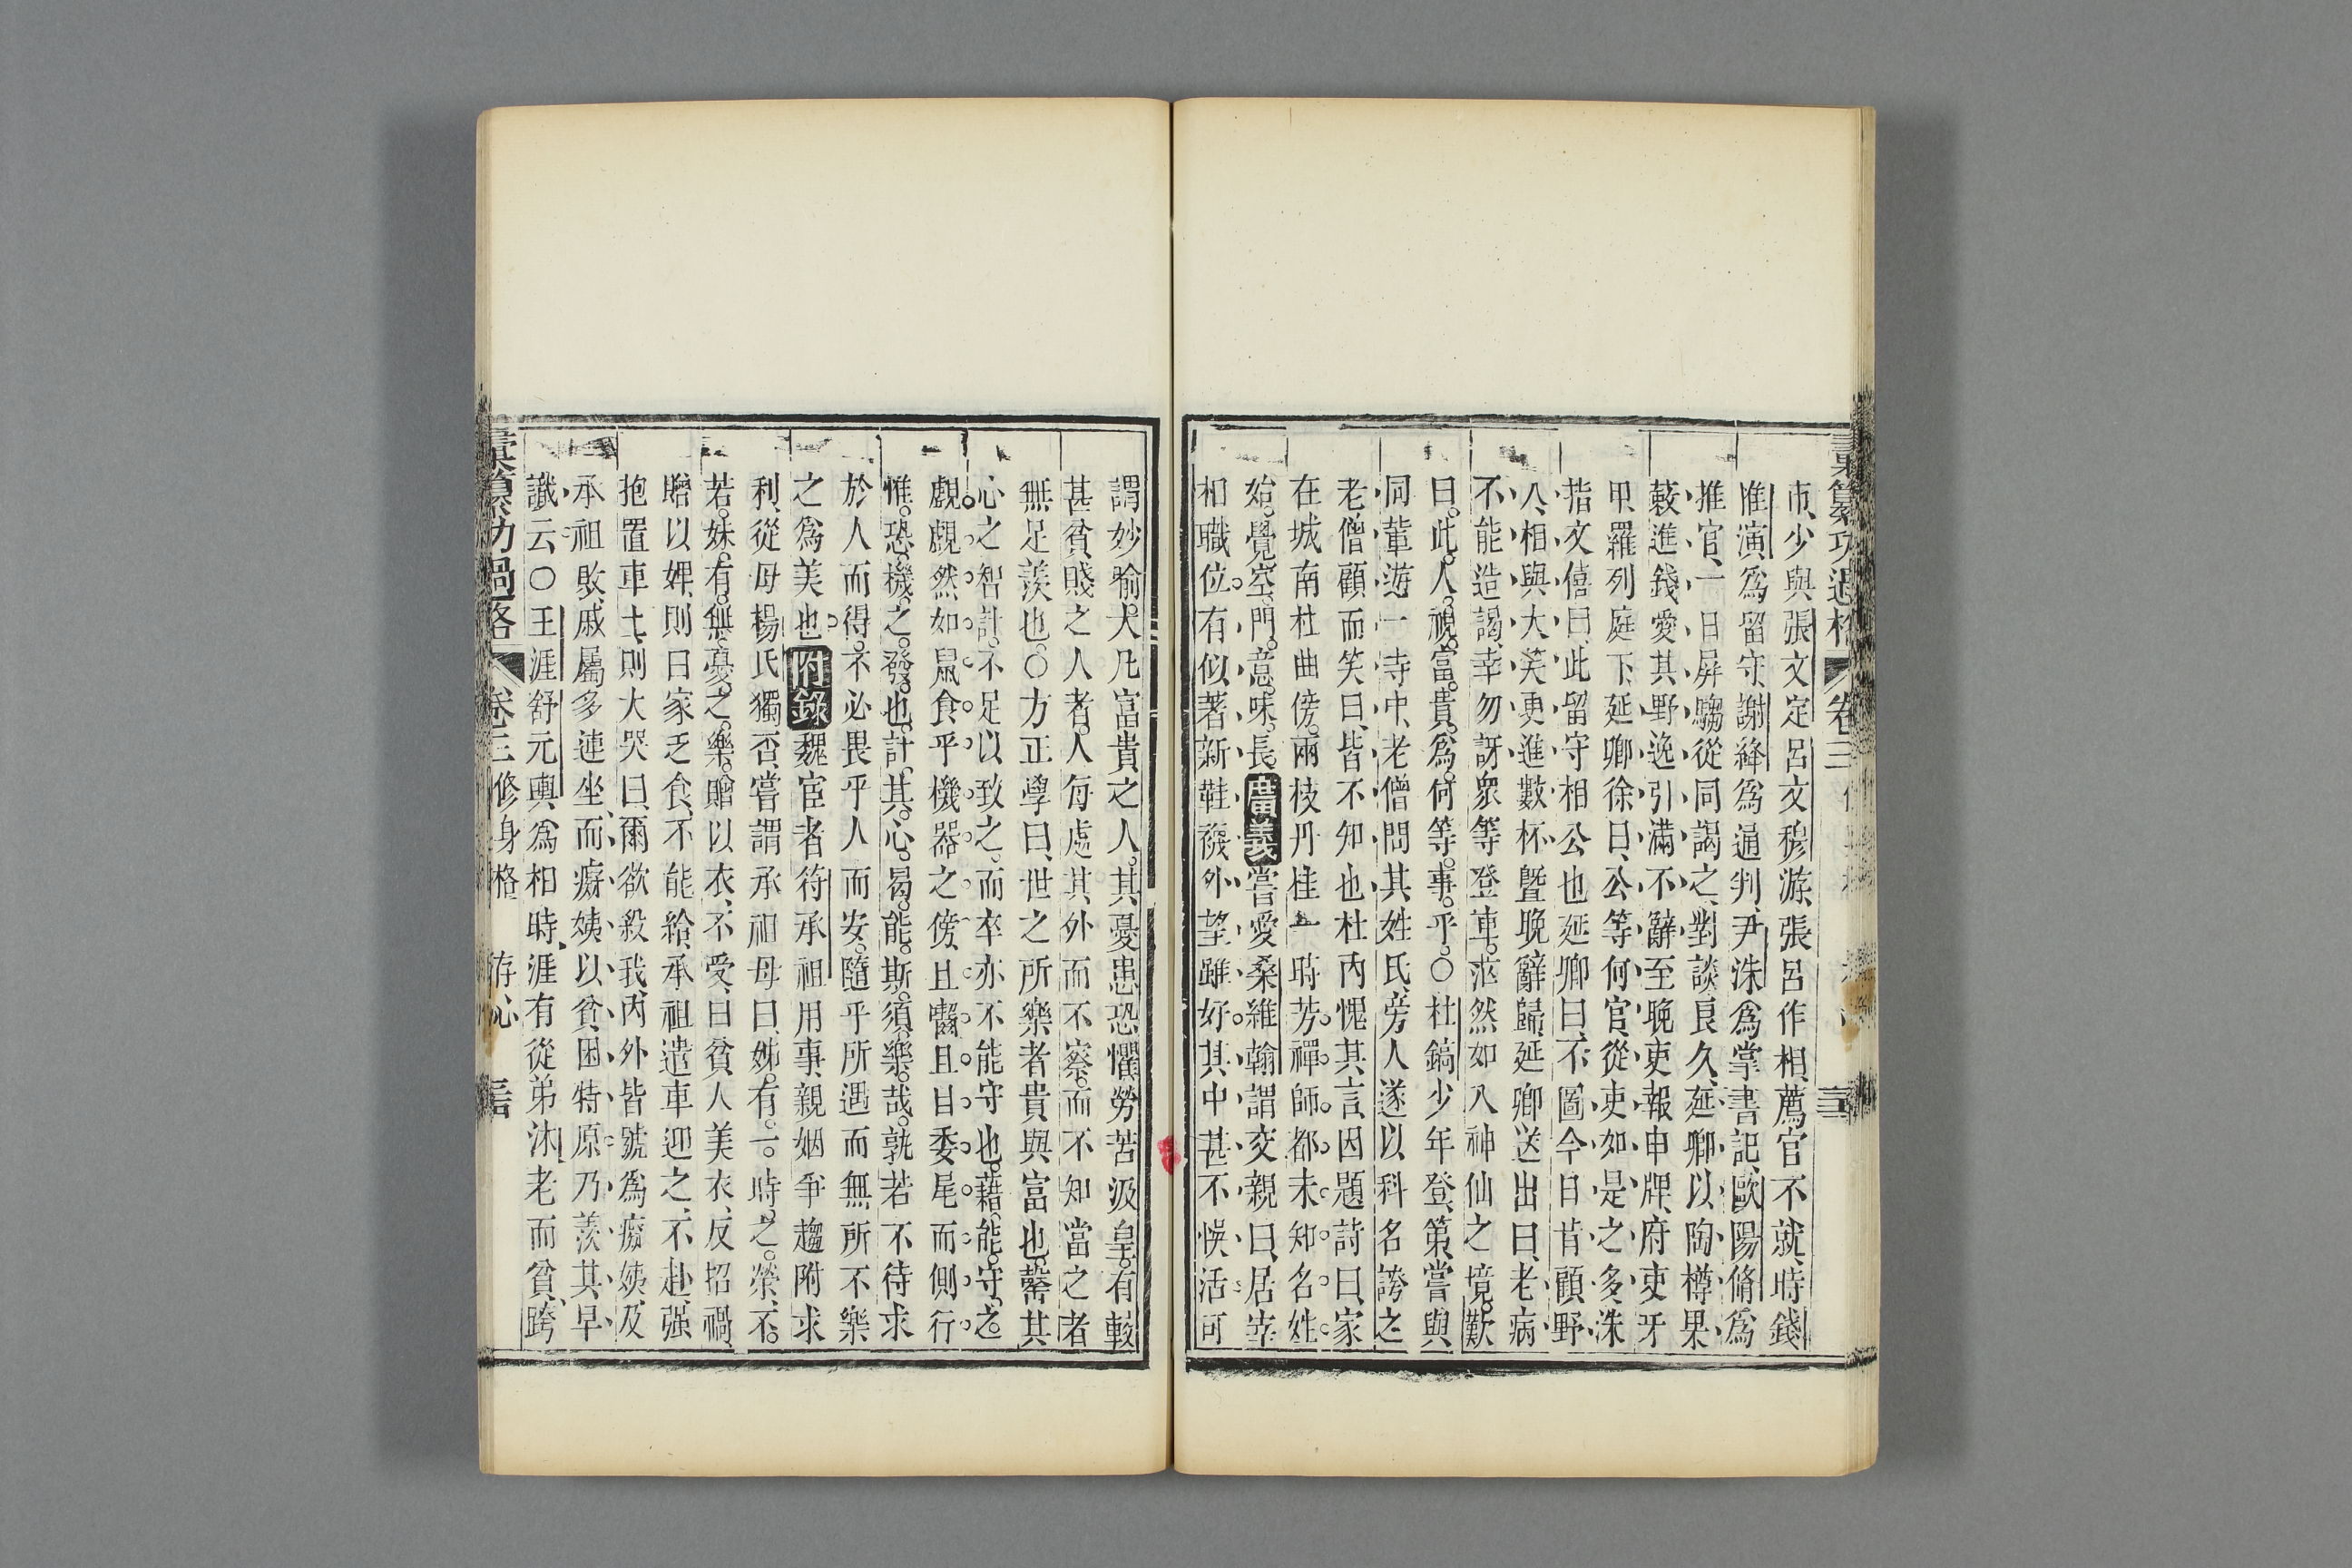 彙纂功過格 卷三
市、少與張文定呂文穆游、張呂作相、薦官不就、時錢
惟演爲留守、謝絳爲通判、尹洙爲掌書記、歐陽脩爲
推官、一日屏騶從同謁之、對談良久、延卿以陶樽果
蔌進、錢愛其野逸、引滿不辭、至晚吏報申牌、府吏牙
甲、羅列庭下、延卿徐曰、公等何官、從吏如是之多、洙
指文僖曰、此留守相公也、延卿曰、不圖今日肯顧野
人、相與大笑、更進數杯、曁晚辭歸、延卿送出曰、老病
不能造謁、幸勿訝、衆等登車。茫然如入神仙之境。歎
曰。此人視富貴爲何等事乎。○杜鎬少年登第、嘗與
同輩遊一寺中、老僧問其姓氏、旁人遂以科名誇之
老僧顧而笑曰、皆不知也、杜內愧其言、因題詩曰、家
在城南杜曲傍。兩枝丹桂一時芳。禪師都未知名姓。
始覺空門意味長。廣義嘗愛桑維翰謂交親曰、居宰
相職位。有似著新鞋襪、外望雖好。其中甚不悞活、可
謂妙喻。大凡富貴之人。其憂患恐懼、勞苦汲皇。有較
甚貧賤之人者。人每處其外而不察。而不知當之者
無足羨也。○方正學曰、世之所樂者貴與富也。罄其
心之智計。不足以致之。而卒亦不能守也。藉能守之。
覷覷然如鼠食乎機器之傍、且齧且目、委尾而側行
惟恐機之發也。計其心。曷能斯須樂哉。孰若不待求
於人而得。不必畏乎人而安。隨乎所遇而無所不樂
之爲美也。附錄魏宦者符承祖用事、親姻爭趨附求
利、從母楊氏獨否、嘗謂承祖母曰、姊有一時之榮。不
若妹有無憂之樂。贈以衣、不受、曰貧人美衣、反招禍
贈以婢、則曰家乏食、不能給、承祖遣車迎之、不赴、强
抱置車上、則大哭曰、爾欲殺我、內外皆號爲癡姨、及
承祖敗、戚屬多連坐、而癡姨以貧困特原、乃羨其早
識云、○王涯舒元輿爲相時、涯有從弟沐、老而貧、跨
彙纂功過格 卷三 修身格